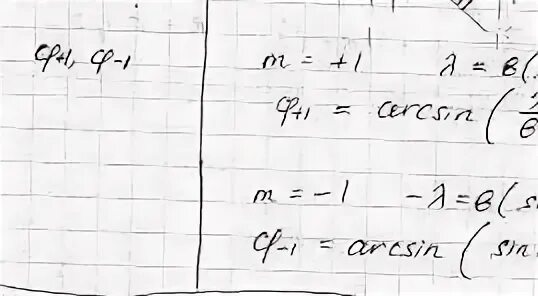 φ+1, φ-1
m = +1 λ = в(
φ+1 = arcsin ( λ/в
m = -1 -λ = в( si
φ-1 = arcsin ( sin